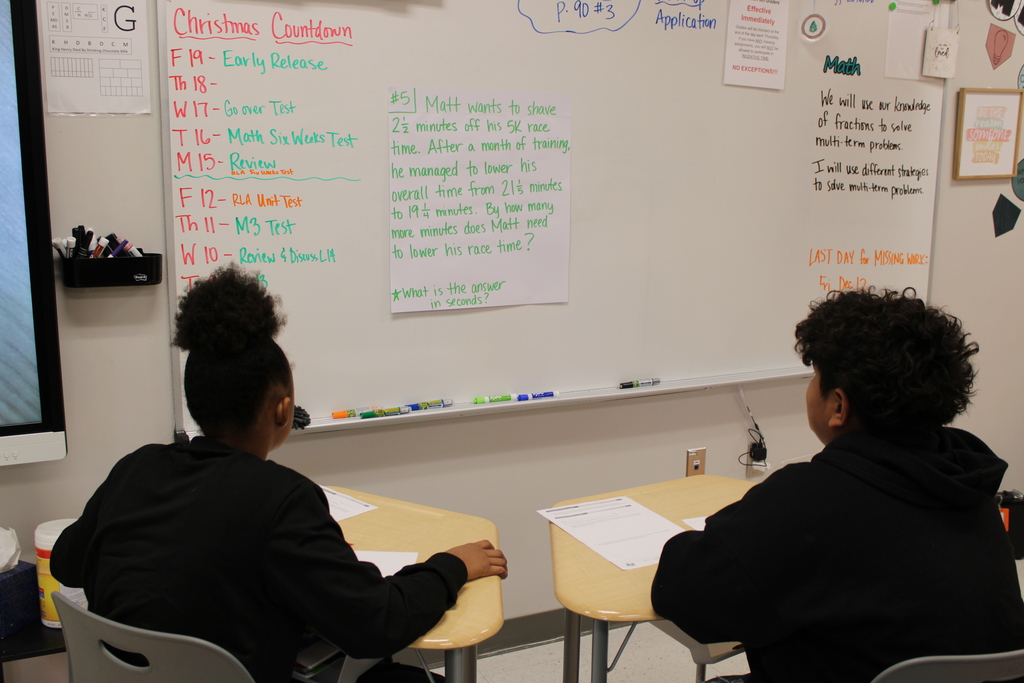 G
K H D B D C M
King Henry Died By Drinking Chocolate Milk
Christmas Countdown
F 19 - Early Release
Th 18 -
W 17 - Go over Test
T 16 - Math Six Weeks Test
M 15 - Review
RLA Six Weeks Test
F 12 - RLA Unit Test
Th 11 - M3 Test
W 10 - Review & Discuss L14
#5 Matt wants to shave
2 1/2 minutes off his 5K race
time. After a month of training,
he managed to lower his
overall time from 21 1/5 minutes
to 19 1/4 minutes. By how many
more minutes does Matt need
to lower his race time?
★What is the answer
in seconds?
p. 90 #3
Application
Effective
Immediately
NO EXCEPTIONS!!!
Math
We will use our knowledge
of fractions to solve
multi-term problems.
I will use different strategies
to solve multi-term problems
LAST DAY for MISSING WORK:
Dec 12